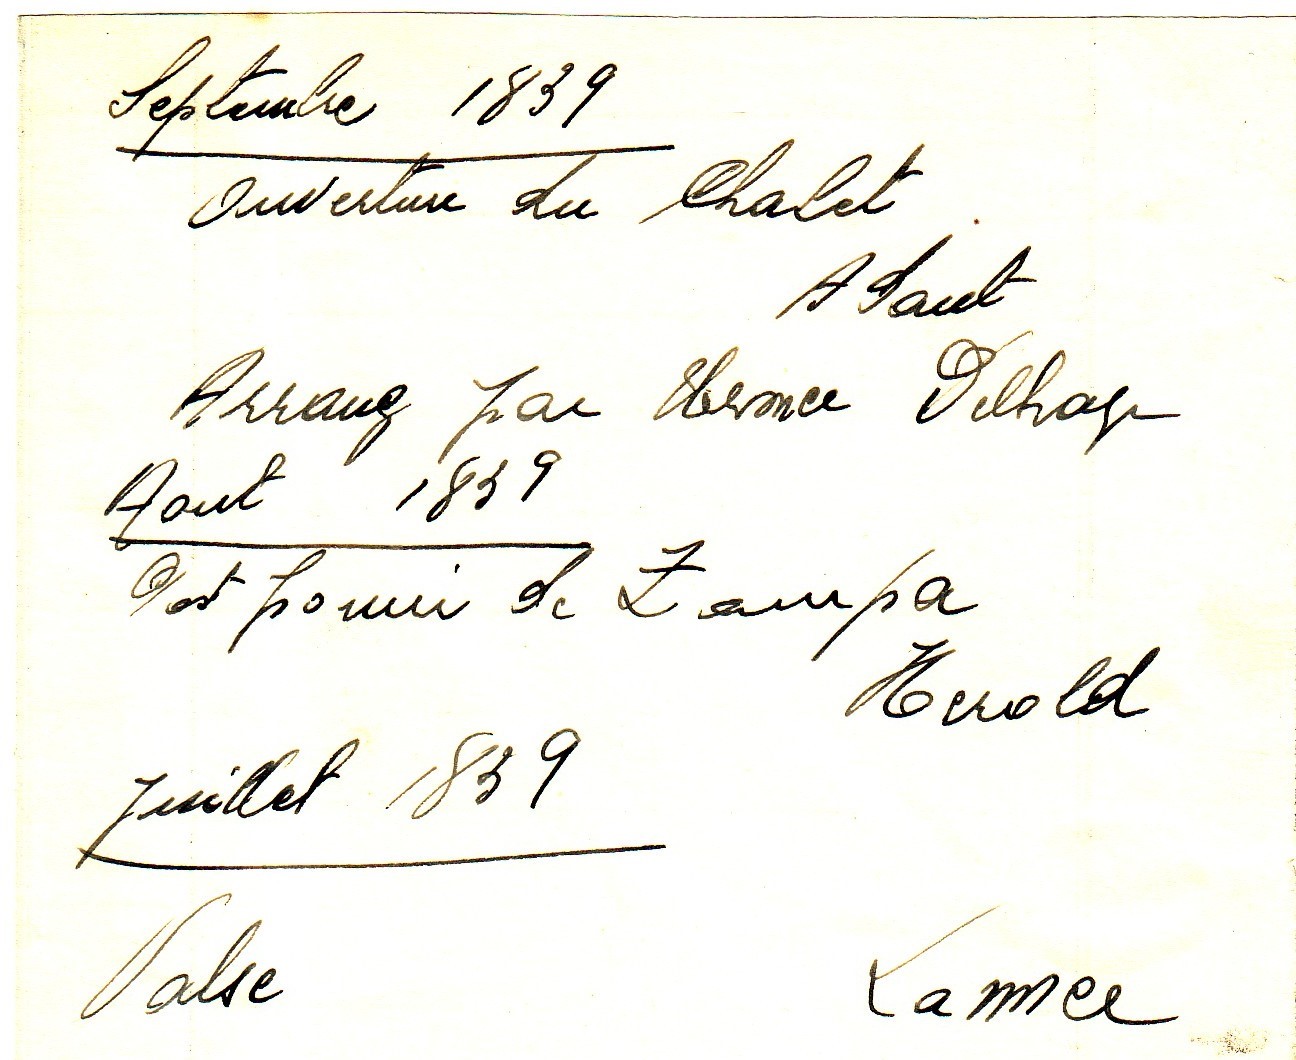 Septembre 1839
Ouverture du Chalet
A Dant
Arrang par Hermce Delhage
Aout 1839
Pot pourri de Zampa
Herold
Juillet 1839
Valse Lannce